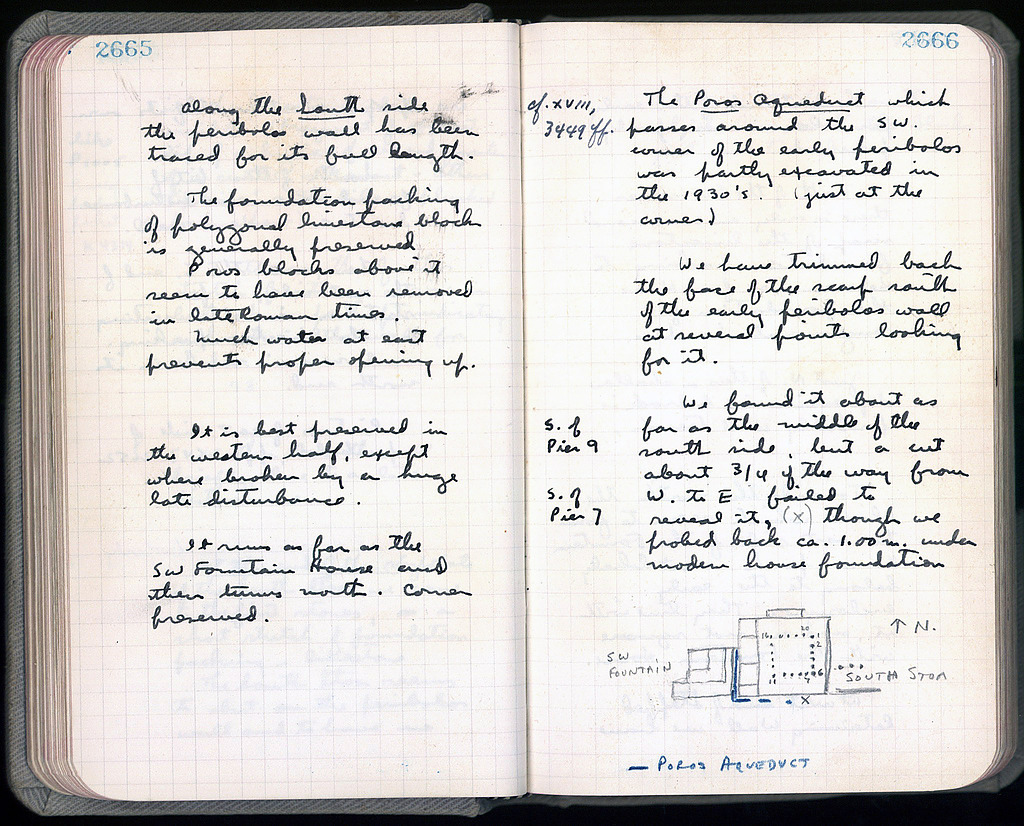 2665
Along the South side
the peribolos wall has been
traced for its full length.
The foundation packing
of polygonal limestone blocks
is generally preserved
Poros blocks above it
seem to have been removed
in late Roman times.
Much water at east
prevents proper opening up.
It is best preserved in
the western half, except
where broken by a huge
late disturbance.
It runs as far as the
SW Fountain House and
then turns north. Corner
preserved.
2666
cf. XVIII,
3449 ff.
The Poros Aqueduct which
passes around the SW.
corner of the early peribolos
was partly excavated in
the 1930's. (just at the
corner)
We have trimmed back
the face of the scarp south
of the early peribolos wall
at several points looking
for it.
We found it about as
S. of
Pier 9
far as the middle of the
south side, but a cut
about 3/4 of the way from
S. of
Pier 7
W. to E failed to
reveal it, (x) though we
probed back ca. 1.00 m. under
modern house foundation
↑ N.
SW
FOUNTAIN
16 20 1
2
11 7 6
SOUTH STOA
X
— POROS AQUEDUCT